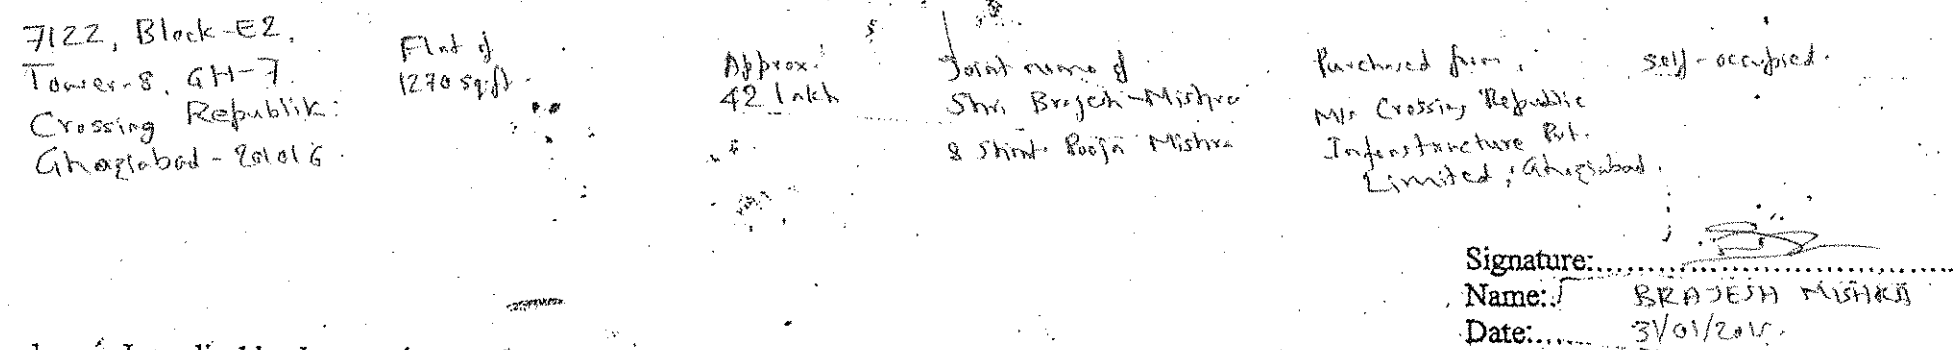 7122, Block-E2,
Tower-8, GH-7
Crossing Republik.
Ghaziabad - 201016.
Flat of
1270 sq.ft.
Approx.
42 lakh
Joint name of
Shri Brajesh Mishra
& Shmt. Pooja Mishra
Purchased from,
M/s Crossing Republic
Infrastructure Pvt.
Limited, Ghaziabad.
self-occupied.
Signature:
Name: BRAJESH MISHRA
Date: 31/01/